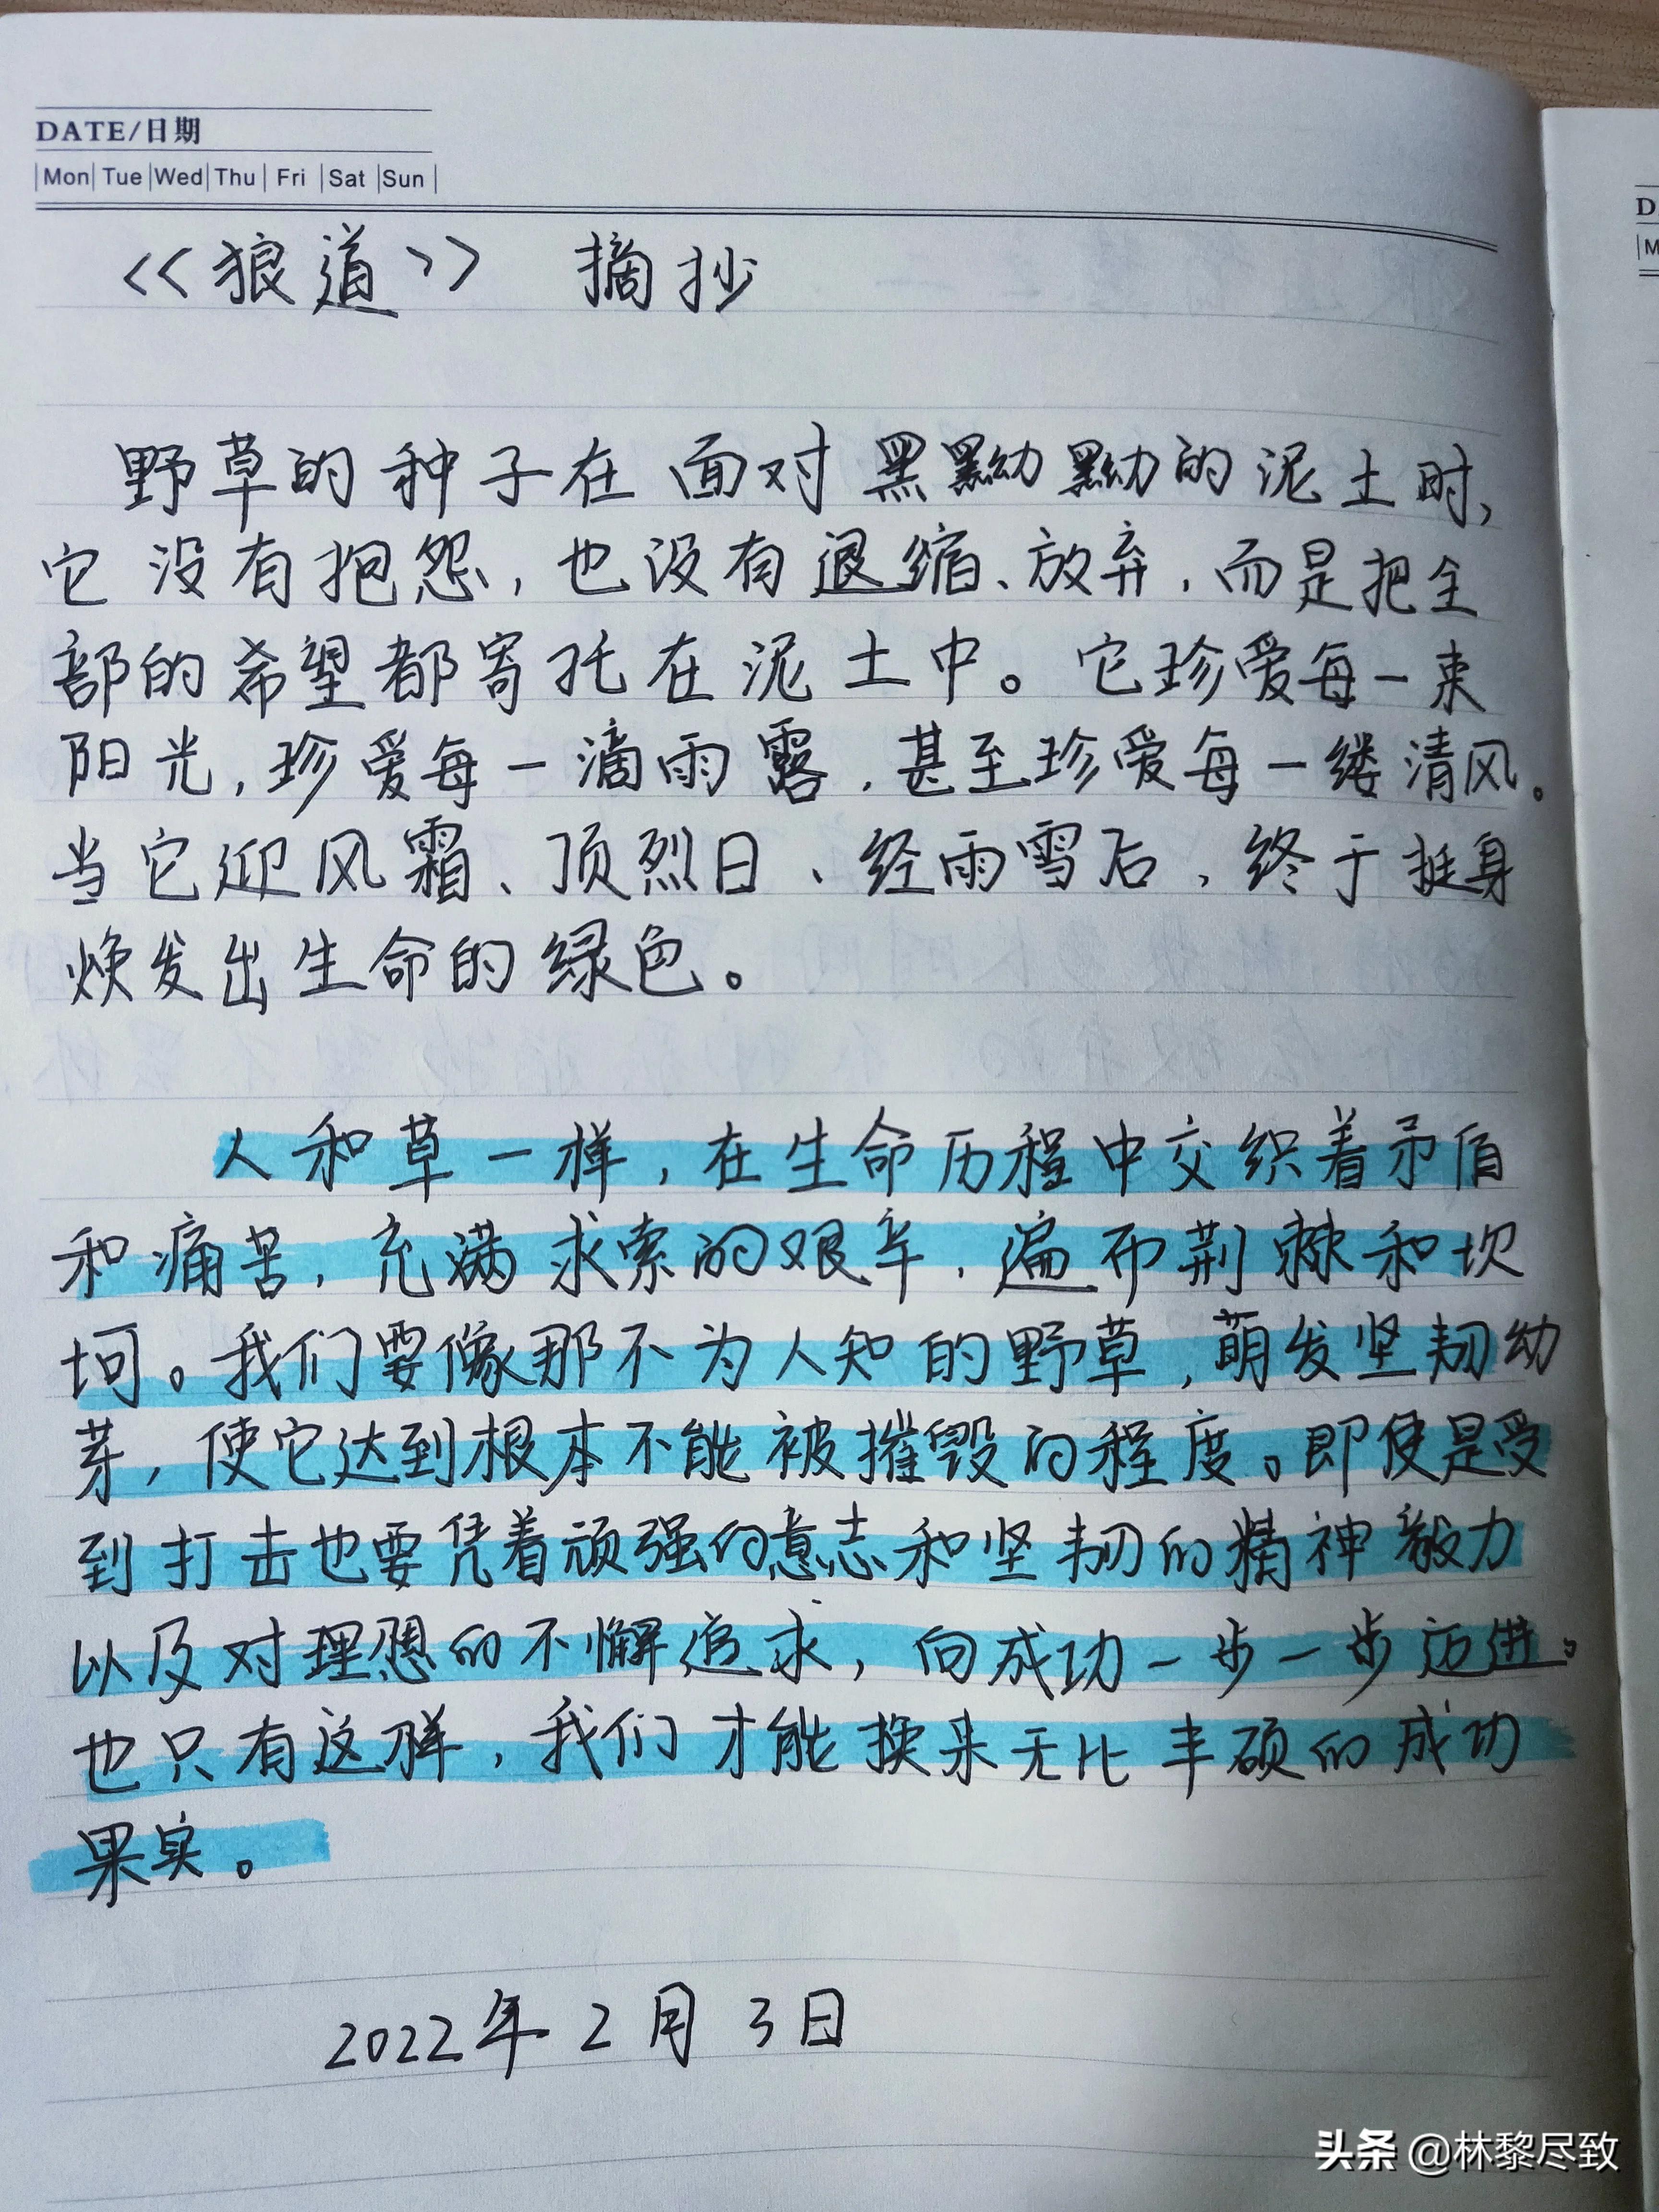 DATE/日期
Mon Tue Wed Thu Fri Sat Sun
<<狼道>> 摘抄
野草的种子在面对黑黝黝的泥土时,
它没有抱怨,也没有退缩、放弃,而是把全
部的希望都寄托在泥土中。它珍爱每一束
阳光,珍爱每一滴雨露,甚至珍爱每一缕清风。
当它迎风霜、顶烈日、经雨雪后,终于挺身
焕发出生命的绿色。
人和草一样,在生命历程中交织着矛盾
和痛苦,充满求索的艰辛,遍布荆棘和坎
坷。我们要像那不为人知的野草,萌发坚韧幼
芽,使它达到根本不能被摧毁的程度。即使是受
到打击也要凭着顽强的意志和坚韧的精神毅力
以及对理想的不懈追求,向成功一步一步迈进。
也只有这样,我们才能换来无比丰硕的成功
果实。
2022年2月3日
头条 @林黎尽致